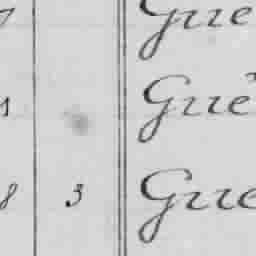 Gue
1 Gue
8 3 Gue